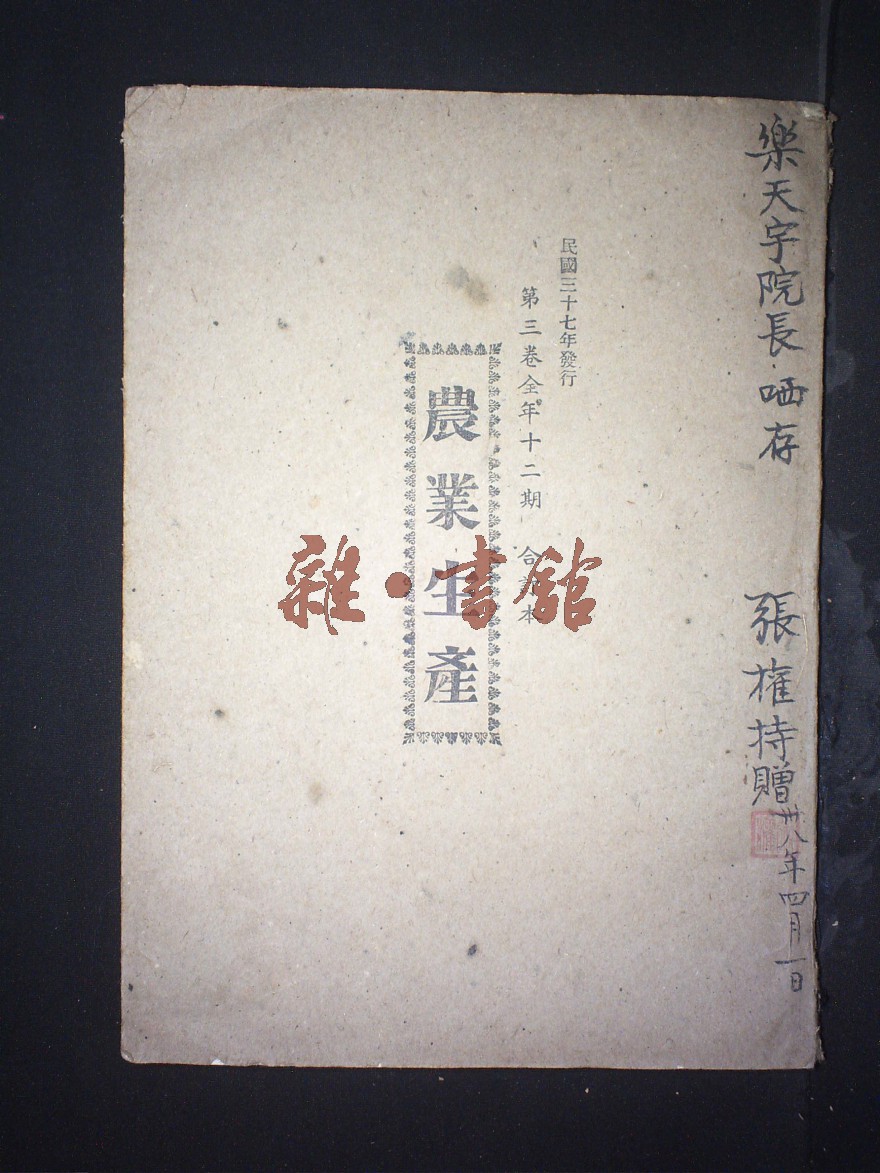 樂天宇院長 哂存
張權持贈
卅八年四月一日
民國三十七年發行
第三卷全年十二期 合訂本
農業生產
雜·書館